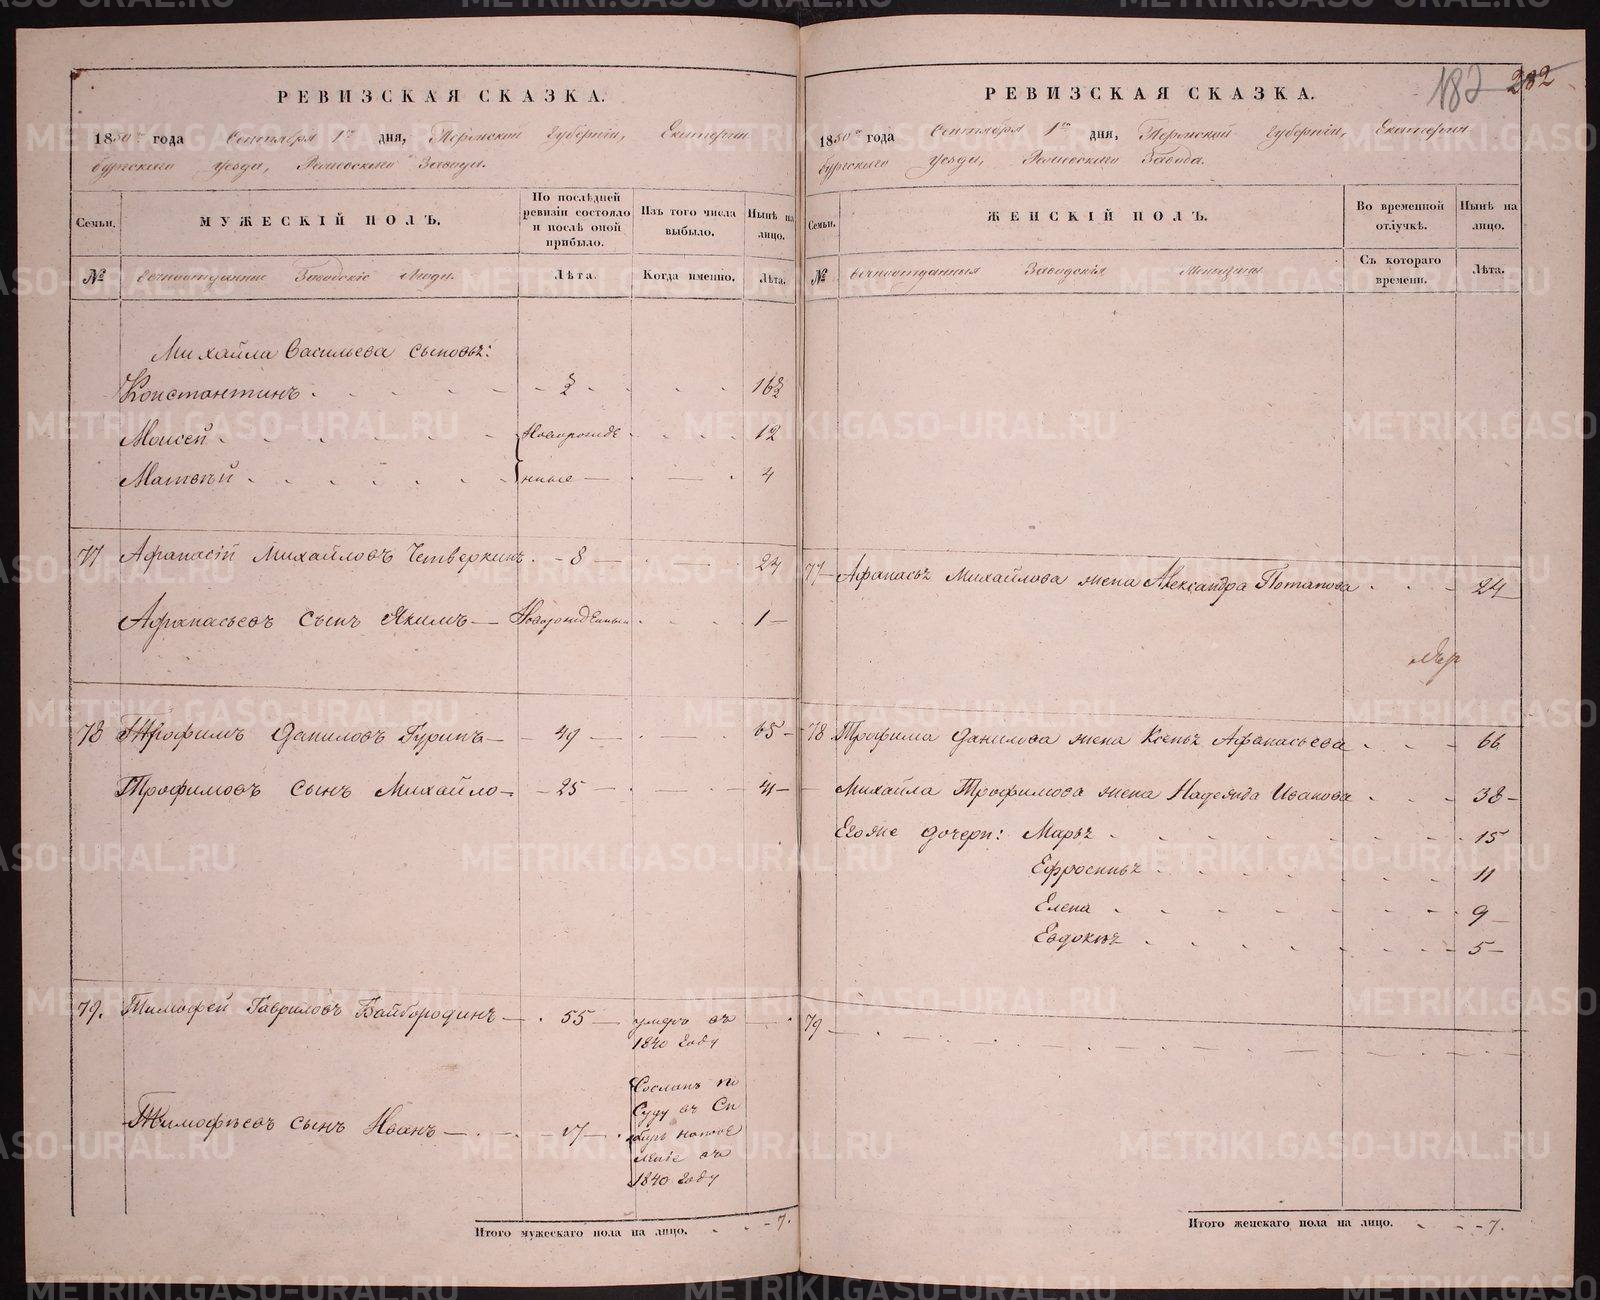 РЕВИЗСКАЯ СКАЗКА.
1850го года Сентября 1го дня, Пермской Губернiи, Екатерин
бургскаго Уезда, Завода.
Семьи.
МУЖЕСКIЙ ПОЛЪ.
По послѣдней ревизiи состояло и послѣ оной прибыло.
Изъ того числа выбыло.
Нынѣ на лицо.
№
вечноотданные Заводскiе Люди.
Лѣта.
Когда именно.
Лѣта.
Михайла Васильева сыновья:
Константинъ 16
Моисей Новорожде 12
Матвѣй нные 4
77 Афанасiй Михайловъ Четверкинъ 8 24
Афанасьевъ сынъ Якимъ Новорожденный 1
78 Трофимъ Даниловъ Гуринъ 49 65
Трофимовъ сынъ Михайло 25 41
79. Тимофей Гавриловъ Байбородинъ 55 умеръ въ
1840 году
Сосланъ по
Суду въ Си
Тимофѣевъ сынъ Иванъ 17 бирь на посе
ленiе въ
1840 году
Итого мужескаго пола на лицо. 7.
182 282
РЕВИЗСКАЯ СКАЗКА.
1850го года Сентября 1го дня, Пермской Губернiи, Екатерин
бургскаго Уезда, Завода.
Семьи.
ЖЕНСКIЙ ПОЛЪ.
Во временной отлучкѣ.
Нынѣ на лицо.
№
вечноотданныя Заводскiя Женщины
Съ котораго времени.
Лѣта.
77 Афанасья Михайлова жена Александра Потапова 24
78 Трофима Данилова жена Ксенья Афанасьева 66
Михайла Трофимова жена Надежда Иванова 38
Егоже дочери: Марья 15
Ефросинья 11
Елена 9
Евдокия 5
79
Итого женскаго пола на лицо. 7.
METRIKI.GASO-URAL.RU